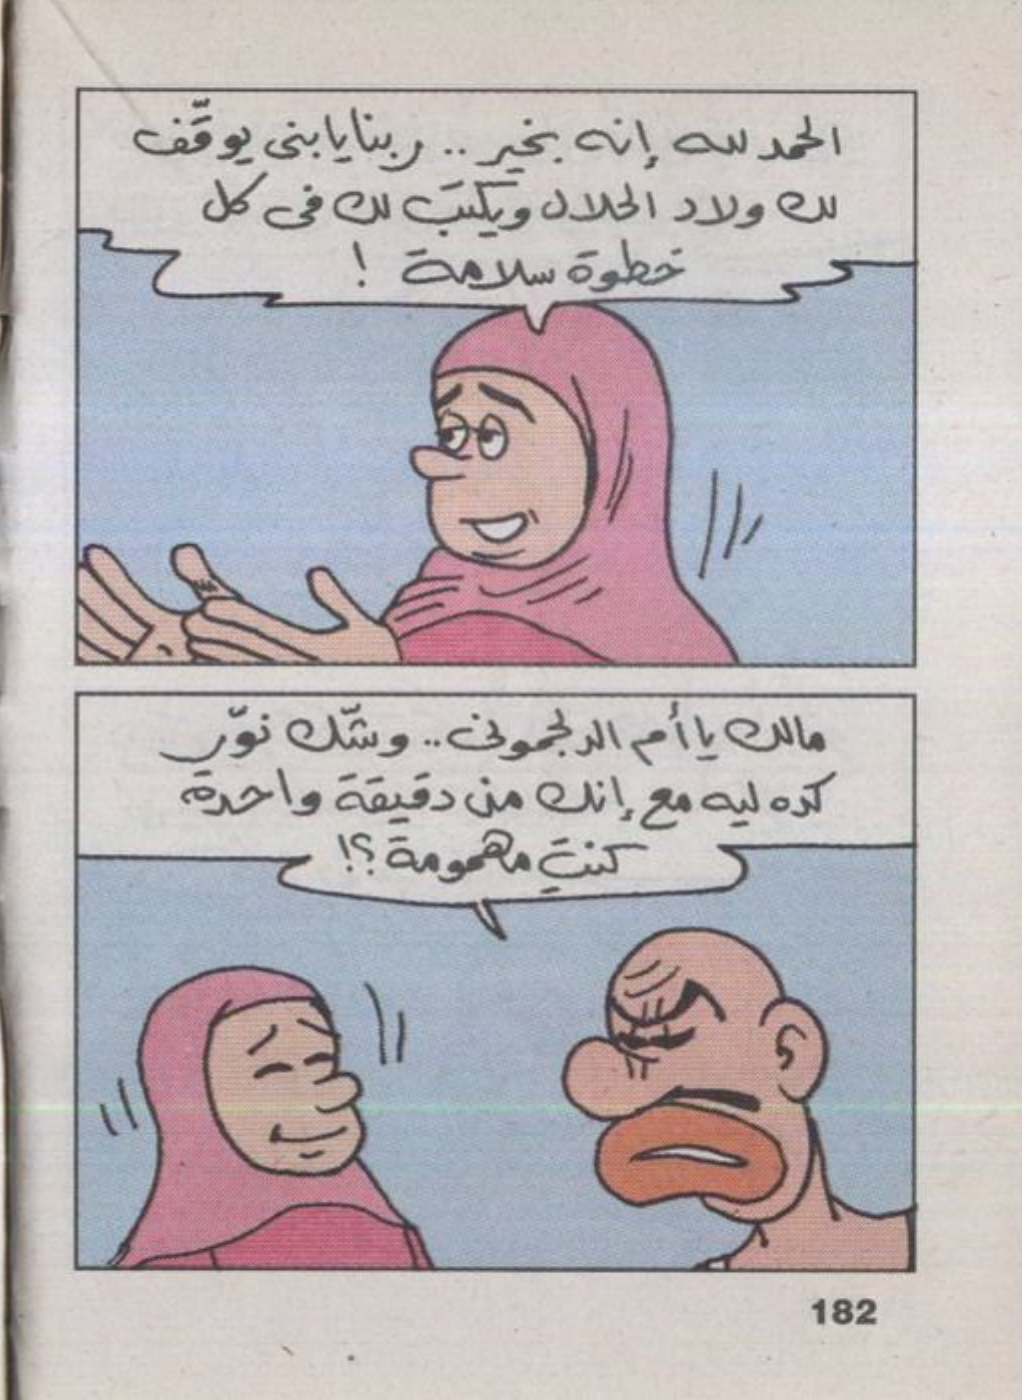 الحمد لله إنه بخير .. ربنا يا بنى يوقّف
لك ولاد الحلال ويكتبَ لك فى كل
خطوة سلامة !
مالك يا أم الدلجمونى .. وشّك نوّر
كده ليه مع إنك من دقيقة واحدة
كنتِ مهمومة ؟!
182